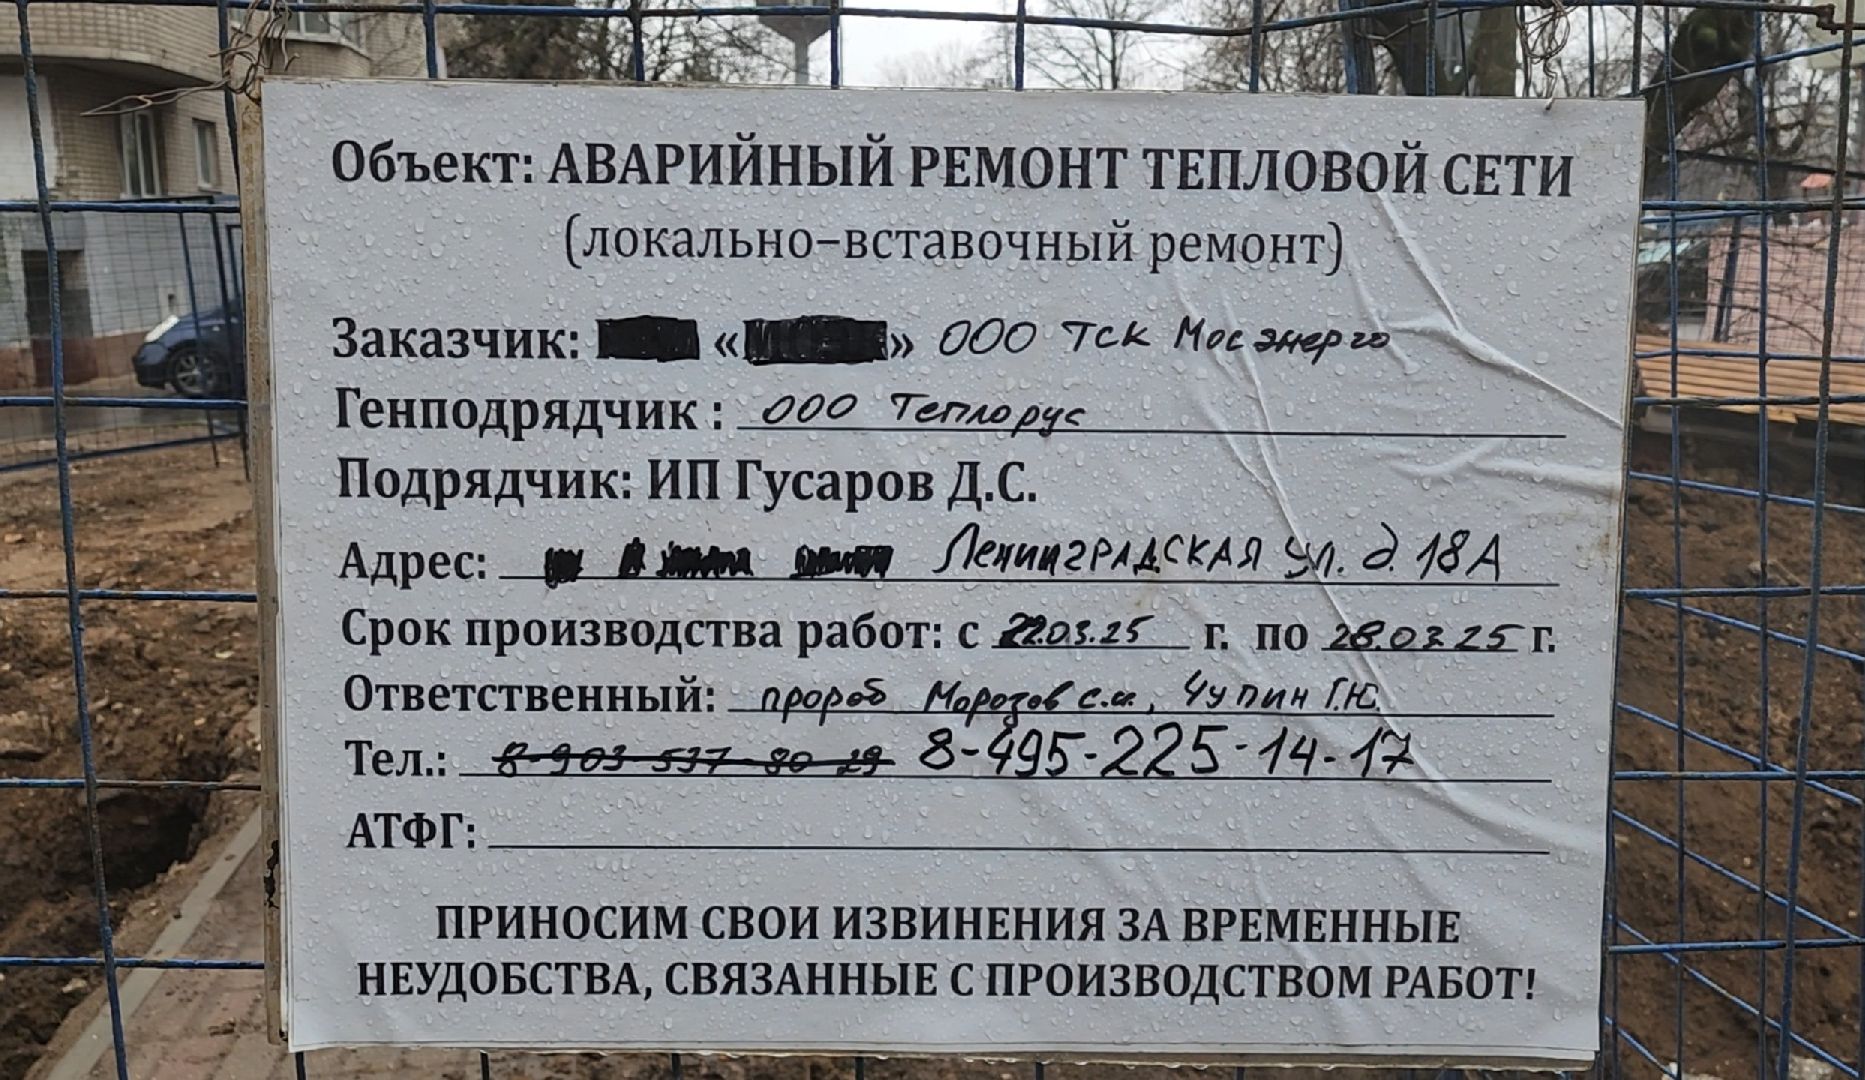 Объект: АВАРИЙНЫЙ РЕМОНТ ТЕПЛОВОЙ СЕТИ
(локально-вставочный ремонт)
Заказчик: « » ООО ТСК Мосэнерго
Генподрядчик : ООО Теплорус
Подрядчик: ИП Гусаров Д.С.
Адрес: Ленинградская ул. д. 18А
Срок производства работ: с 22.03.25 г. по 28.03.25 г.
Ответственный: прораб Морозов С.И., Чупин Г.Ю.
Тел.: 8-903-537-80-29 8-495-225-14-17
АТФГ:
ПРИНОСИМ СВОИ ИЗВИНЕНИЯ ЗА ВРЕМЕННЫЕ
НЕУДОБСТВА, СВЯЗАННЫЕ С ПРОИЗВОДСТВОМ РАБОТ!